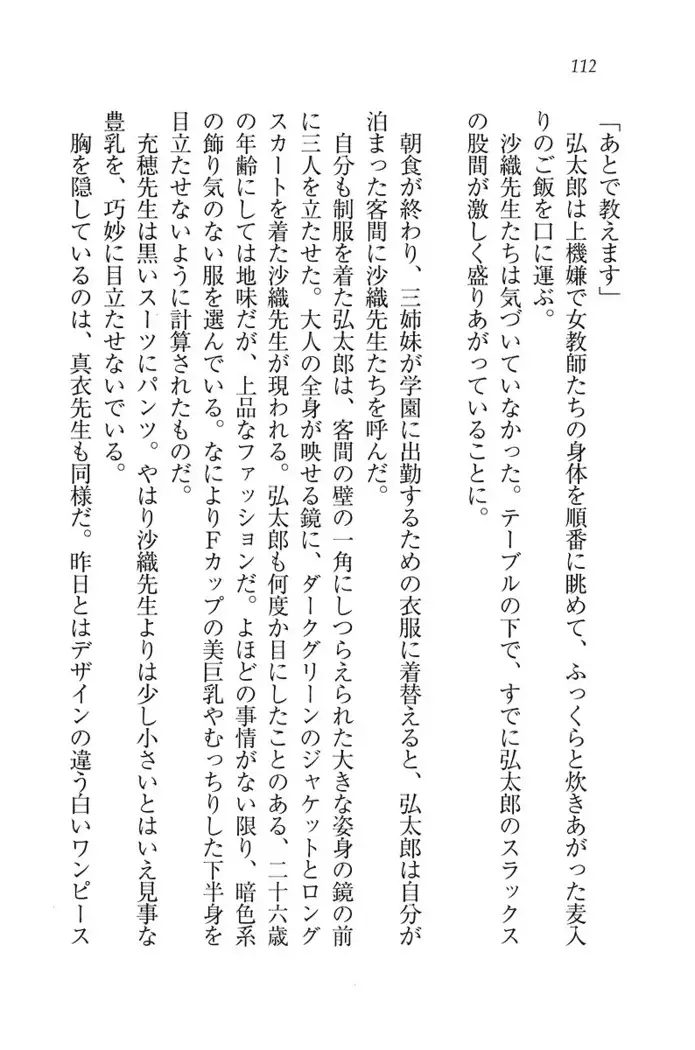 112
「あとで教えます」
弘太郎は上機嫌で女教師たちの身体を順番に眺めて、ふっくらと炊きあがった麦入
りのご飯を口に運ぶ。
沙織先生たちは気づいていなかった。テーブルの下で、すでに弘太郎のスラックス
の股間が激しく盛りあがっていることに。
朝食が終わり、三姉妹が学園に出勤するための衣服に着替えると、弘太郎は自分が
泊まった客間に沙織先生たちを呼んだ。
自分も制服を着た弘太郎は、客間の壁の一角にしつらえられた大きな姿身の鏡の前
に三人を立たせた。大人の全身が映せる鏡に、ダークグリーンのジャケットとロング
スカートを着た沙織先生が現われる。弘太郎も何度か目にしたことのある、二十六歳
の年齢にしては地味だが、上品なファッションだ。よほどの事情がない限り、暗色系
の飾り気のない服を選んでいる。なによりFカップの美巨乳やむっちりした下半身を
目立たせないように計算されたものだ。
充穂先生は黒いスーツにパンツ。やはり沙織先生よりは少し小さいとはいえ見事な
豊乳を、巧妙に目立たせないでいる。
胸を隠しているのは、真衣先生も同様だ。昨日とはデザインの違う白いワンピース